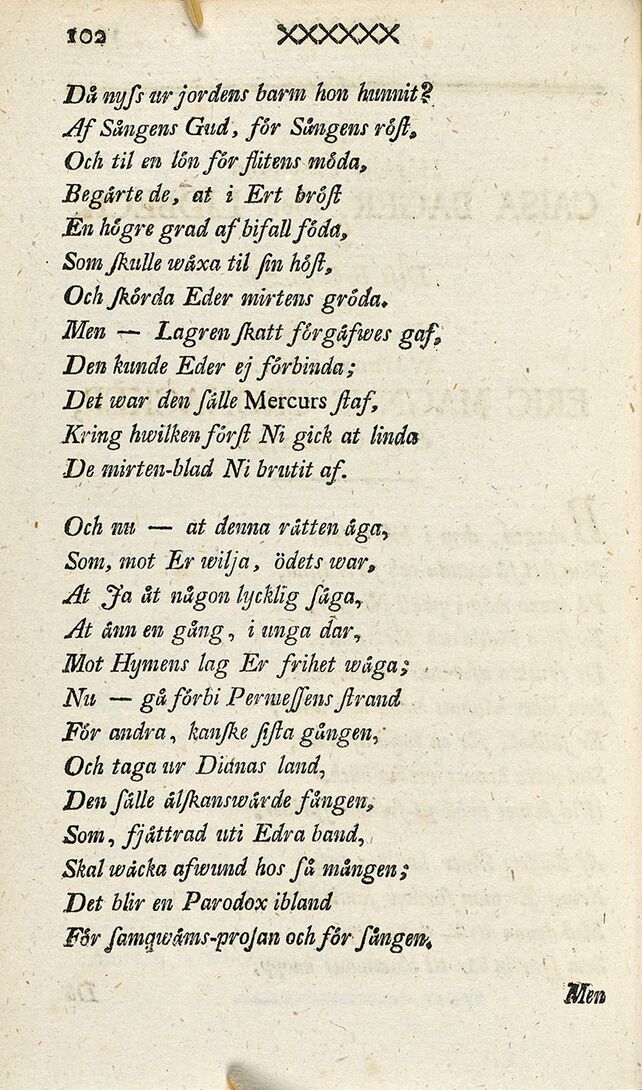 102 XXXXXX
Då nyſs ur jordens barm hon hunnit?
Af Sångens Gud, för Sångens röſt,
Och til en lön för flitens möda,
Begärte de, at i Ert bröſt
En högre grad af bifall föda,
Som ſkulle wäxa til ſin höſt,
Och ſkörda Eder mirtens gröda.
Men — Lagren ſkatt förgäfwes gaf,
Den kunde Eder ej förbinda;
Det war den ſälle Mercurs ſtaf,
Kring hwilken förſt Ni gick at linda
De mirten-blad Ni brutit af.
Och nu — at denna rätten äga,
Som, mot Er wilja, ödets war,
At Ja åt någon lycklig ſäga,
At änn en gång, i unga dar,
Mot Hymens lag Er frihet wåga;
Nu — gå förbi Permeſſens ſtrand
För andra, kanſke ſiſta gången,
Och taga ur Dianas land,
Den ſälle älſkanswärde fången,
Som, fjättrad uti Edra band,
Skal wäcka afwund hos ſå mången;
Det blir en Parodox ibland
För ſamqwäms-projan och för ſången.
Men